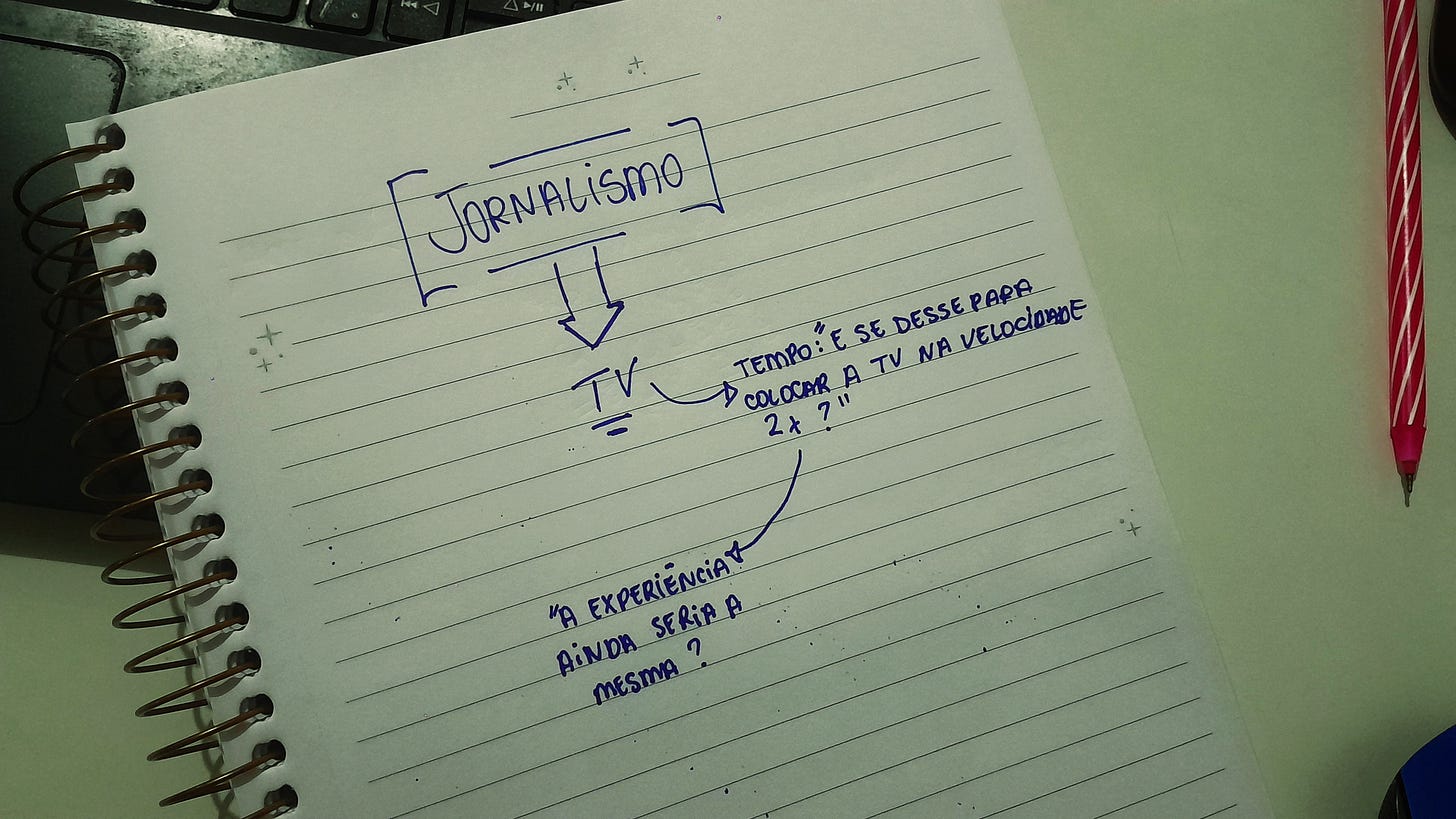 JORNALISMO
TV
TEMPO: "E SE DESSE PARA
COLOCAR A TV NA VELOCIDADE
2x ?"
"A EXPERIÊNCIA
AINDA SERIA A
MESMA ?